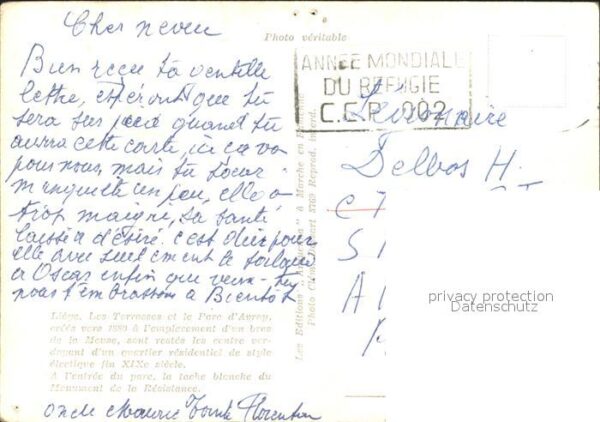 Cher neveu
Bien reçu ta gentille
lettre, espéront que tu
sera sur pied quand tu
aura cette carte, ici ca va
pour nous, mais ta soeur
m'enquiete un peu, elle a
trop maigri, sa santé
laisse a désiré. c'est dur pour
elle avec seulement le
a Oscar enfin que veux-tu
nous t'embrassons a Bientôt
Photo véritable
ANNÉE MONDIALE
DU REFUGIE
C.C.P. 902
Delbos H.
Liége. Les Terrasses et le Parc d'Avroy,
créés vers 1880 à l'emplacement d'un bras
de la Meuse, sont restés les centre ver-
doyant d'un quartier résidentiel de style
éclectique fin XIXe siècle.
A l'entrée du parc, la tache blanche du
Monument de la Résistance.
Les Editions " " à Marche en
Photo 5769 Reprod. interd.
privacy protection
Datenschutz
oncle Maurice Tante Florentine